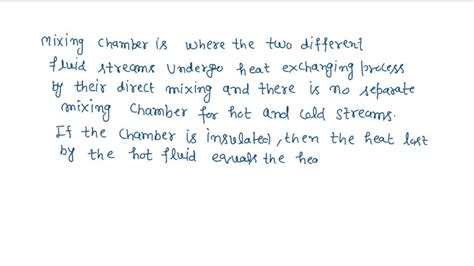 Mixing chamber is where the two different
fluid streams Undergo heat exchanging process
by their direct mixing and there is no separate
mixing Chamber for hot and cold streams.
If the Chamber is insulated, then the heat lost
by the hot fluid equals the hea